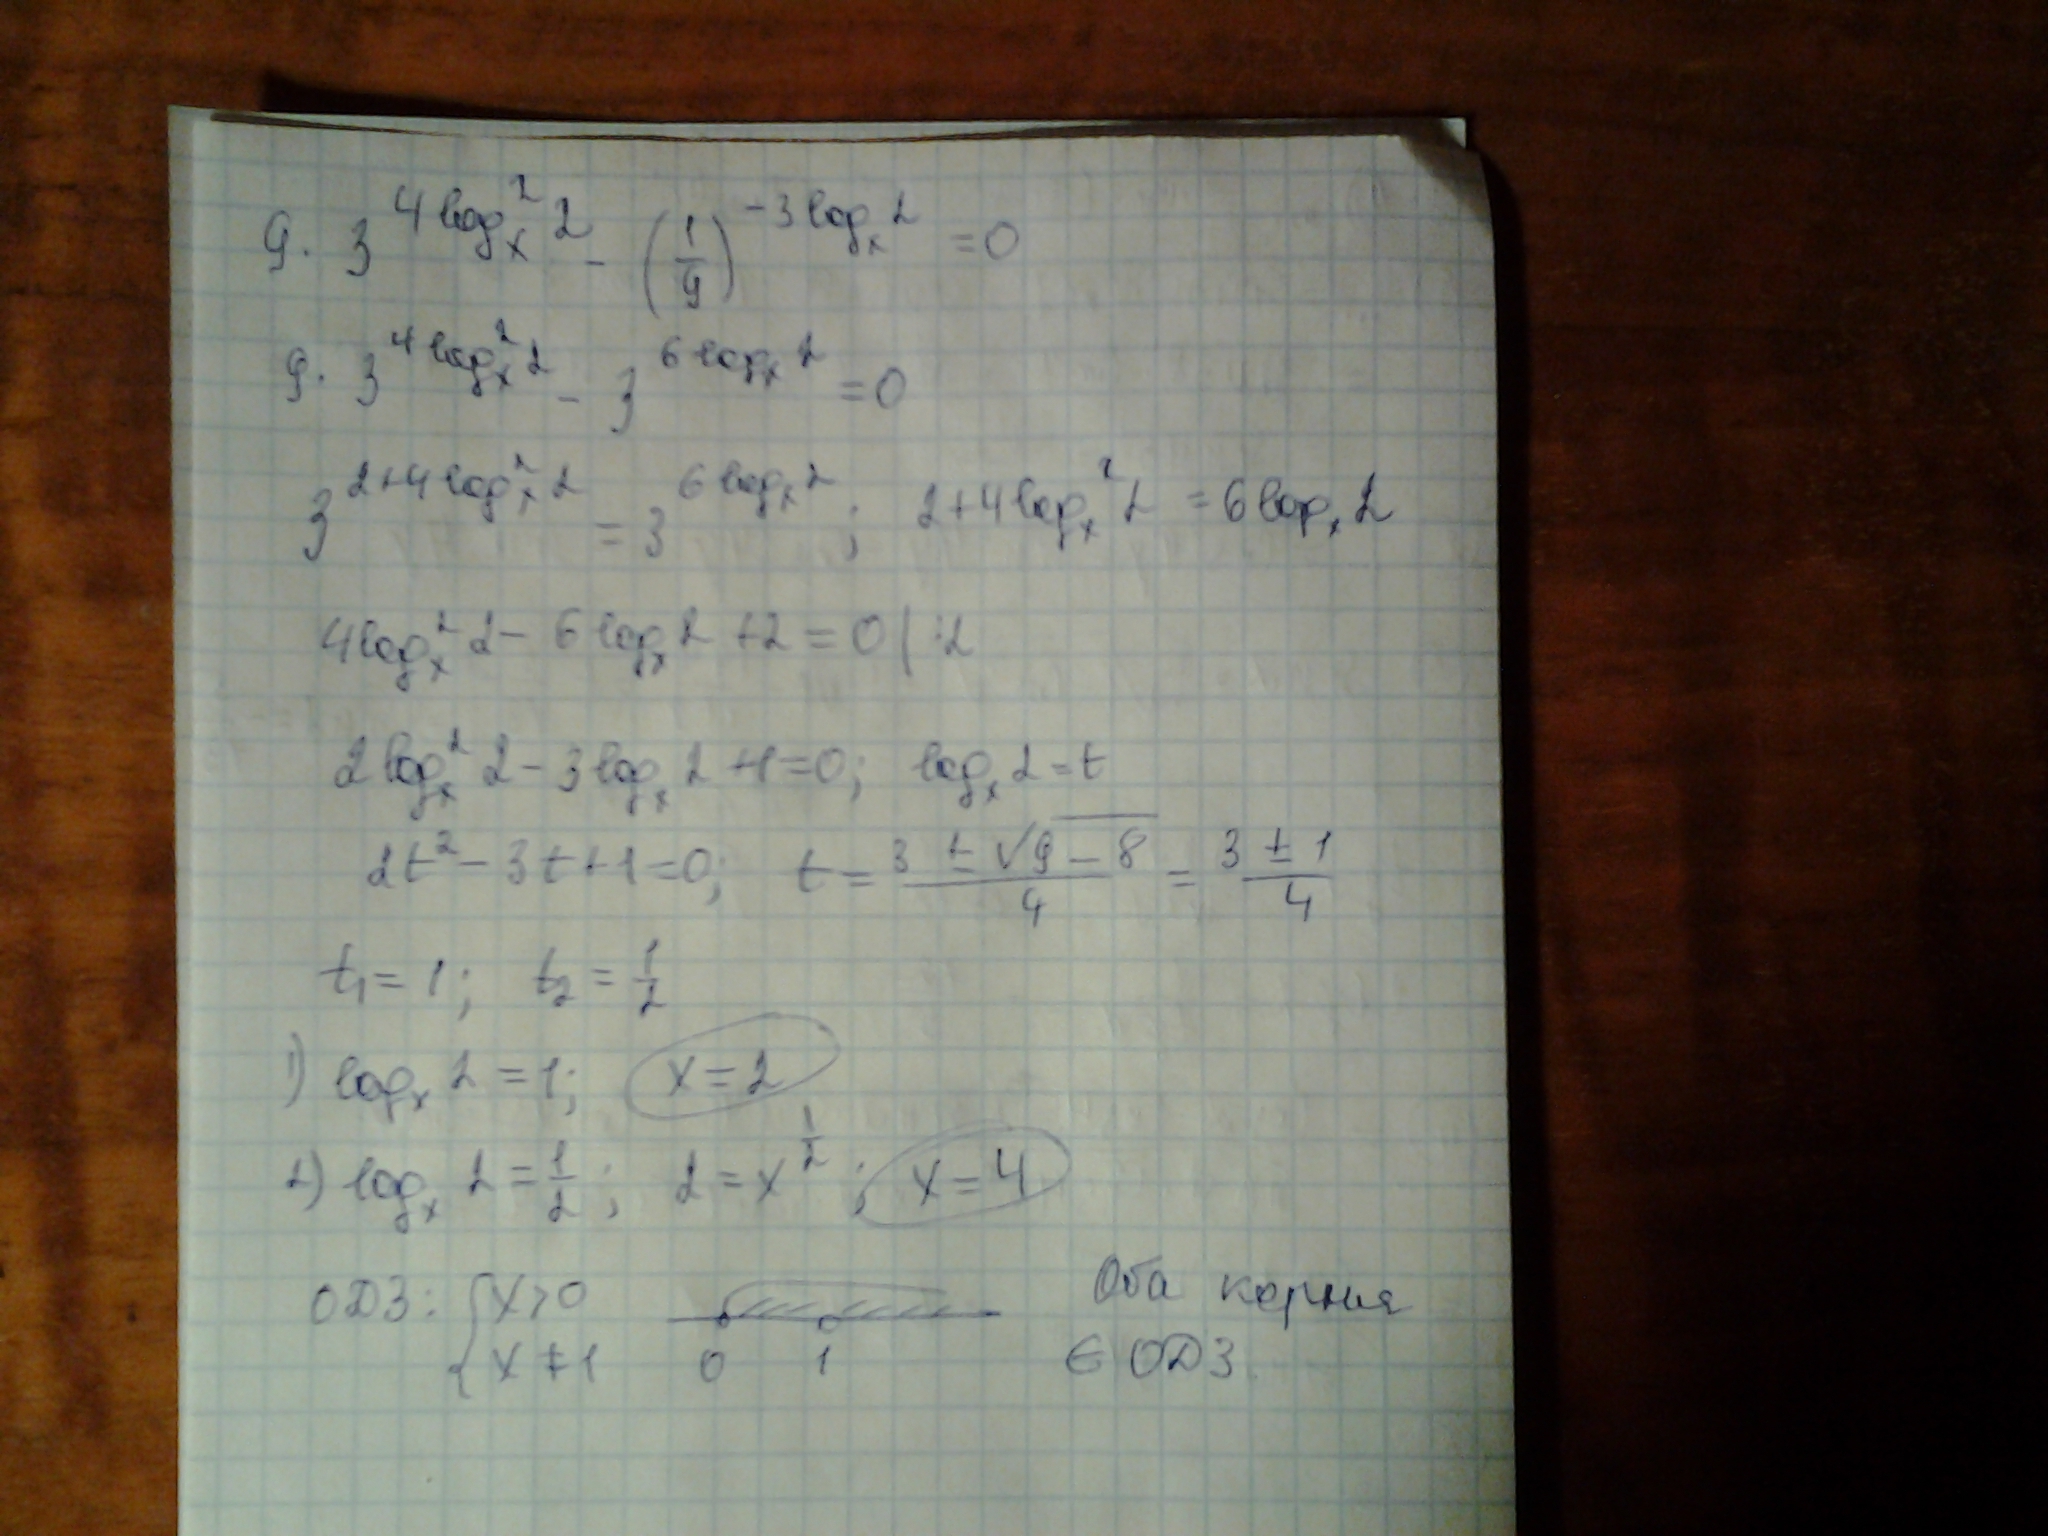 9 · 3^(4log_x^2 2) - (1/9)^(-3log_x 2) = 0
9 · 3^(4log_x^2 2) - 3^(6log_x 2) = 0
3^(2+4log_x^2 2) = 3^(6log_x 2); 2+4log_x^2 2 = 6log_x 2
4log_x^2 2 - 6log_x 2 + 2 = 0 | :2
2log_x^2 2 - 3log_x 2 + 1 = 0; log_x 2 = t
2t² - 3t + 1 = 0; t = (3 ± √(9 - 8))/4 = (3 ± 1)/4
t₁ = 1; t₂ = 1/2
1) log_x 2 = 1; x = 2
2) log_x 2 = 1/2; 2 = x^(1/2); x = 4
ОДЗ: { x > 0 Оба корня
x ≠ 1 0 1 ∈ ОДЗ.